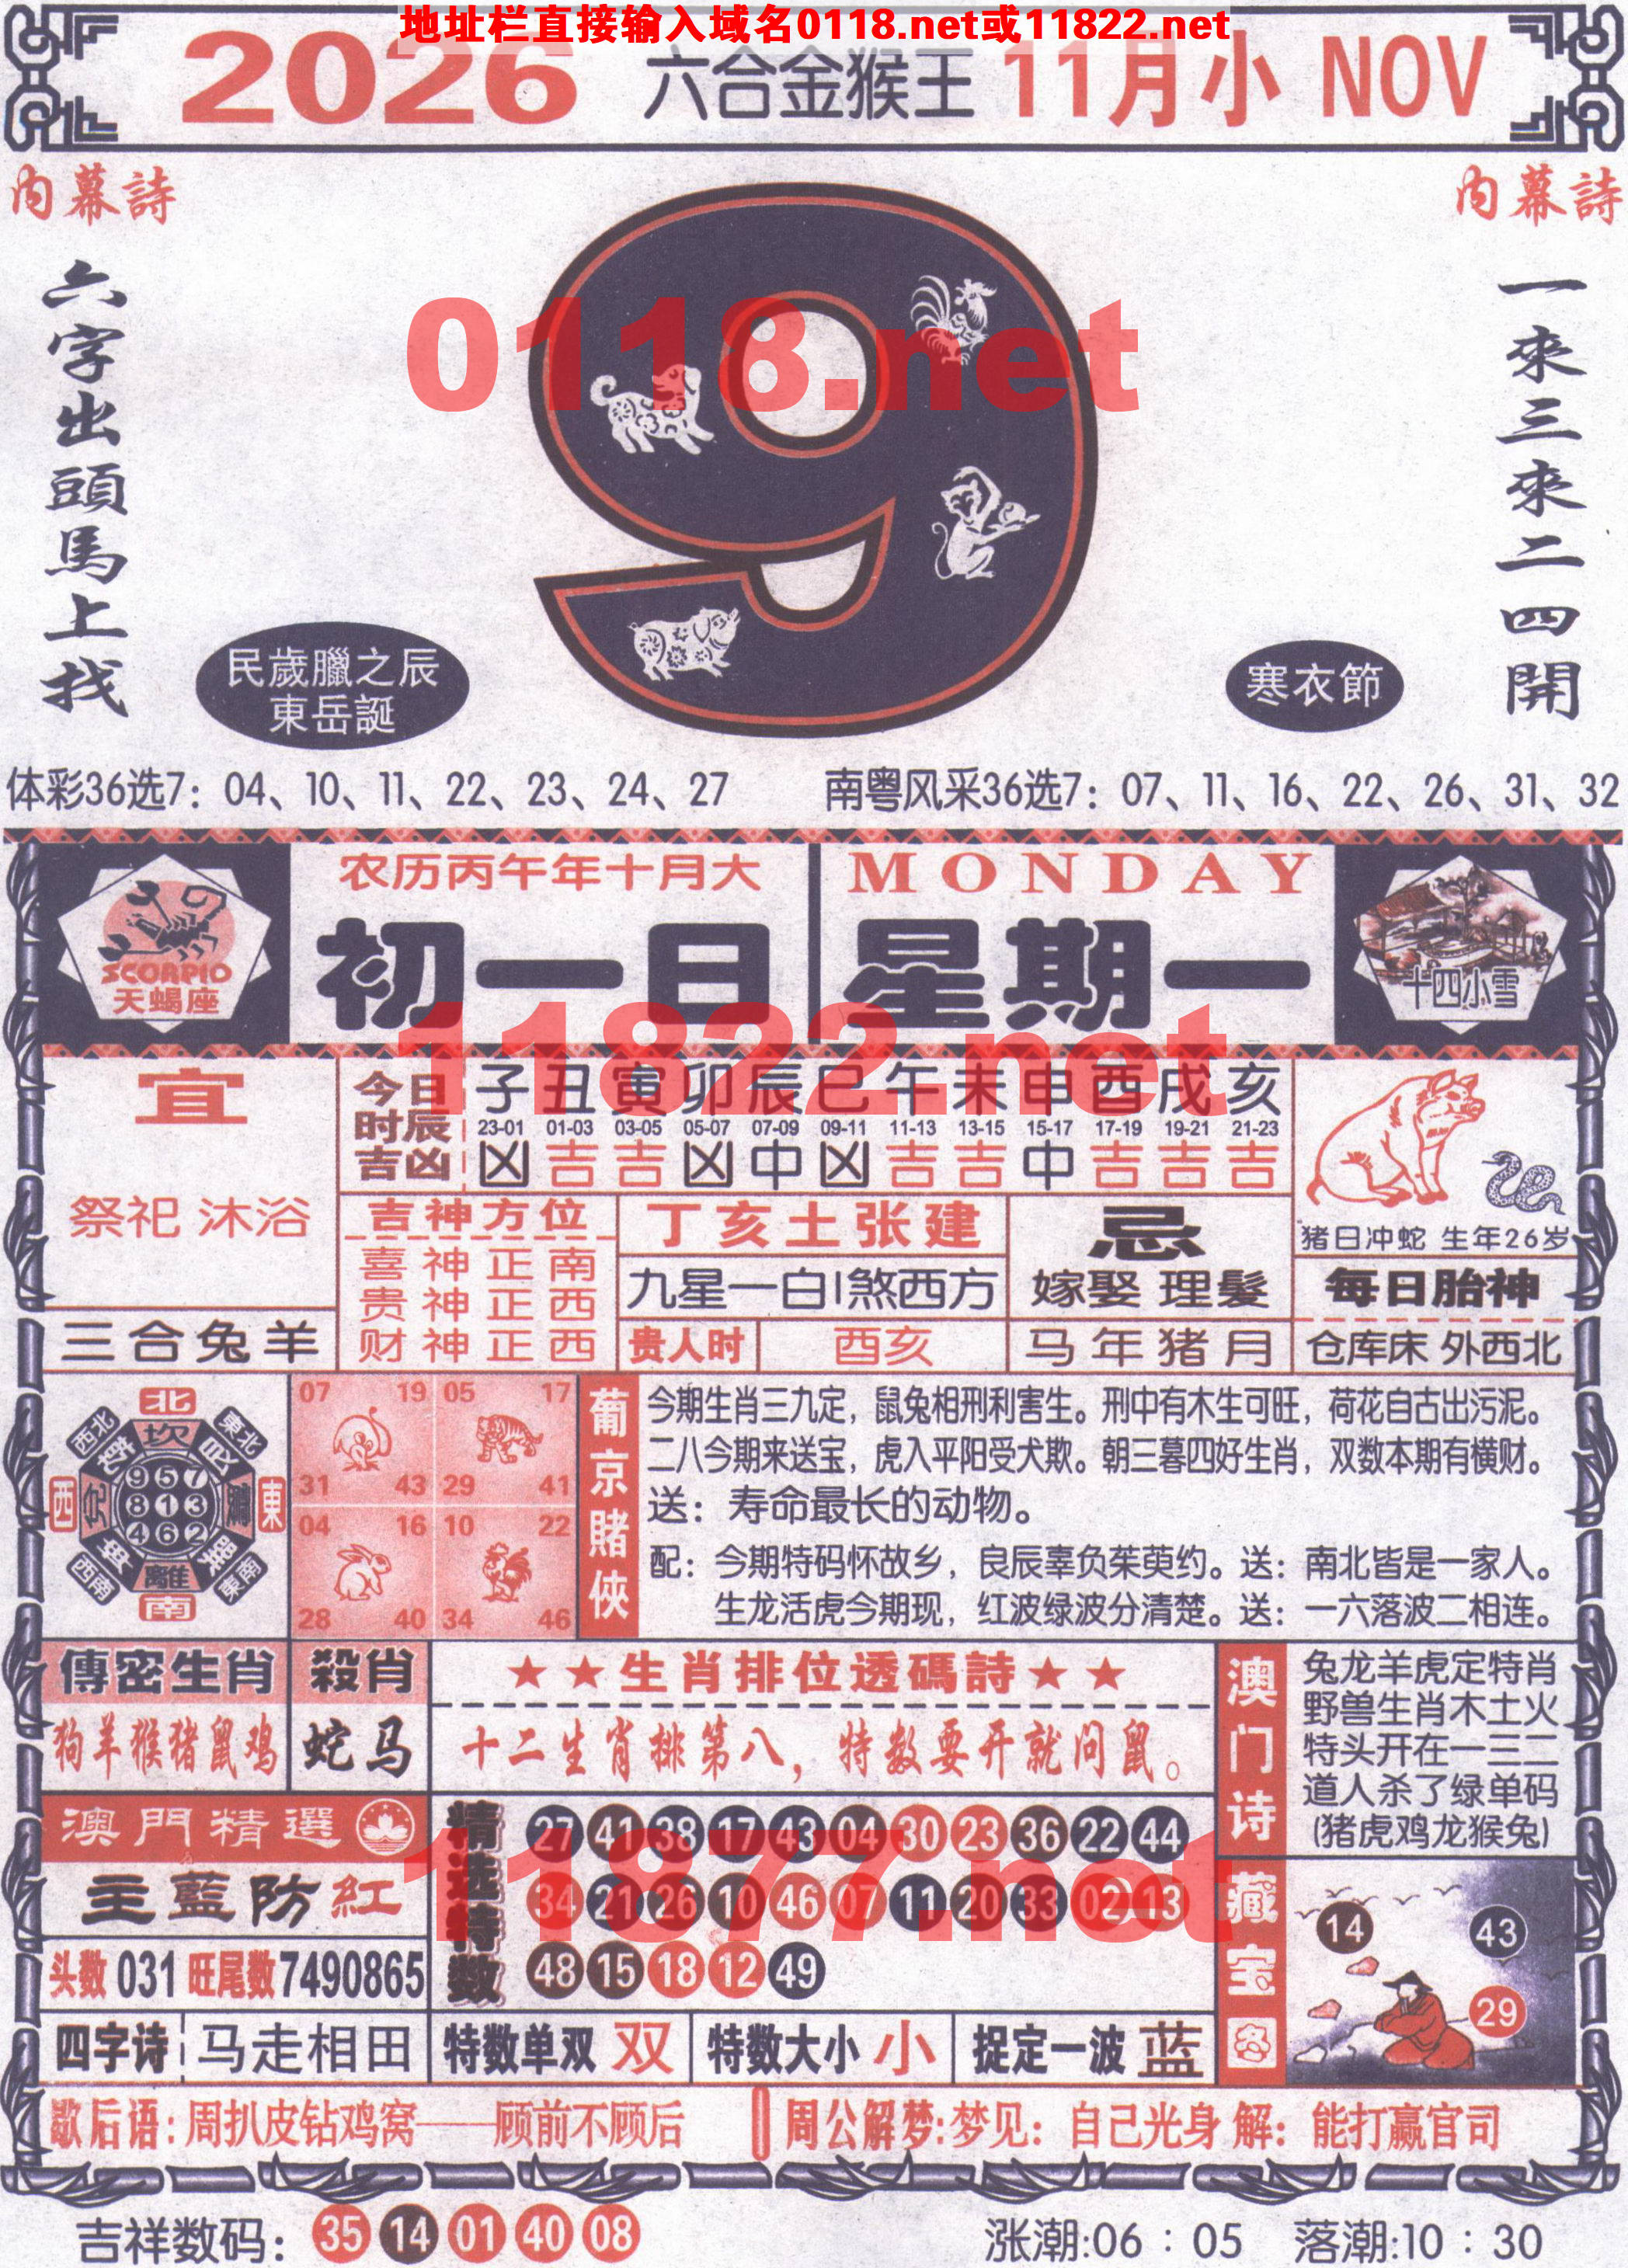 地址栏直接输入域名0118.net或11822.net
2026 六合金猴王 11月小 NOV
内幕詩
内幕詩
六字出頭馬上找
一來三來二四開
0118.net
民歲臘之辰
東岳誕
寒衣節
体彩36选7：04、10、11、22、23、24、27
南粤风采36选7：07、11、16、22、26、31、32
SCORPIO
天蝎座
农历丙午年十月大
初一日
MONDAY
星期一
十四小雪
11822.net
宜
祭祀 沐浴
三合兔羊
今日
时辰
吉凶
子 丑 寅 卯 辰 巳 午 未 申 酉 戌 亥
23-01 01-03 03-05 05-07 07-09 09-11 11-13 13-15 15-17 17-19 19-21 21-23
凶 吉 吉 凶 中 凶 吉 吉 中 吉 吉 吉
吉神方位
喜神正南
贵神正西
财神正西
丁亥土张建
九星一白 煞西方
贵人时 酉亥
忌
嫁娶 理髮
马年猪月
猪日冲蛇 生年26岁
每日胎神
仓库床 外西北
北
西北 坎 東北
西 兌 東
西南 離 東南
南
9 5 7
8 1 3
4 6 2
07 19 05 17
31 43 29 41
04 16 10 22
28 40 34 46
葡京賭俠
今期生肖三九定，鼠兔相刑利害生。刑中有木生可旺，荷花自古出污泥。
二八今期来送宝，虎入平阳受犬欺。朝三暮四好生肖，双数本期有横财。
送：寿命最长的动物。
配：今期特码怀故乡，良辰辜负茱萸约。送：南北皆是一家人。
生龙活虎今期现，红波绿波分清楚。送：一六落波二相连。
傳密生肖
狗羊猴猪鼠鸡
殺肖
蛇马
★★生肖排位透碼詩★★
十二生肖排第八，特数要开就问鼠。
澳门诗
兔龙羊虎定特肖
野兽生肖木土火
特头开在一三二
道人杀了绿单码
(猪虎鸡龙猴兔)
澳門精選
主藍防紅
头数 031 旺尾数 7490865
精选特数
27 41 38 17 43 04 30 23 36 22 44
34 21 26 10 46 07 11 20 33 02 13
48 15 18 12 49
11877.net
藏宝图
14 43
29
四字诗 马走相田
特数单双 双
特数大小 小
捉定一波 蓝
歇后语：周扒皮钻鸡窝——顾前不顾后
周公解梦：梦见：自己光身 解：能打赢官司
吉祥数码：35 14 01 40 08
涨潮:06：05 落潮:10：30